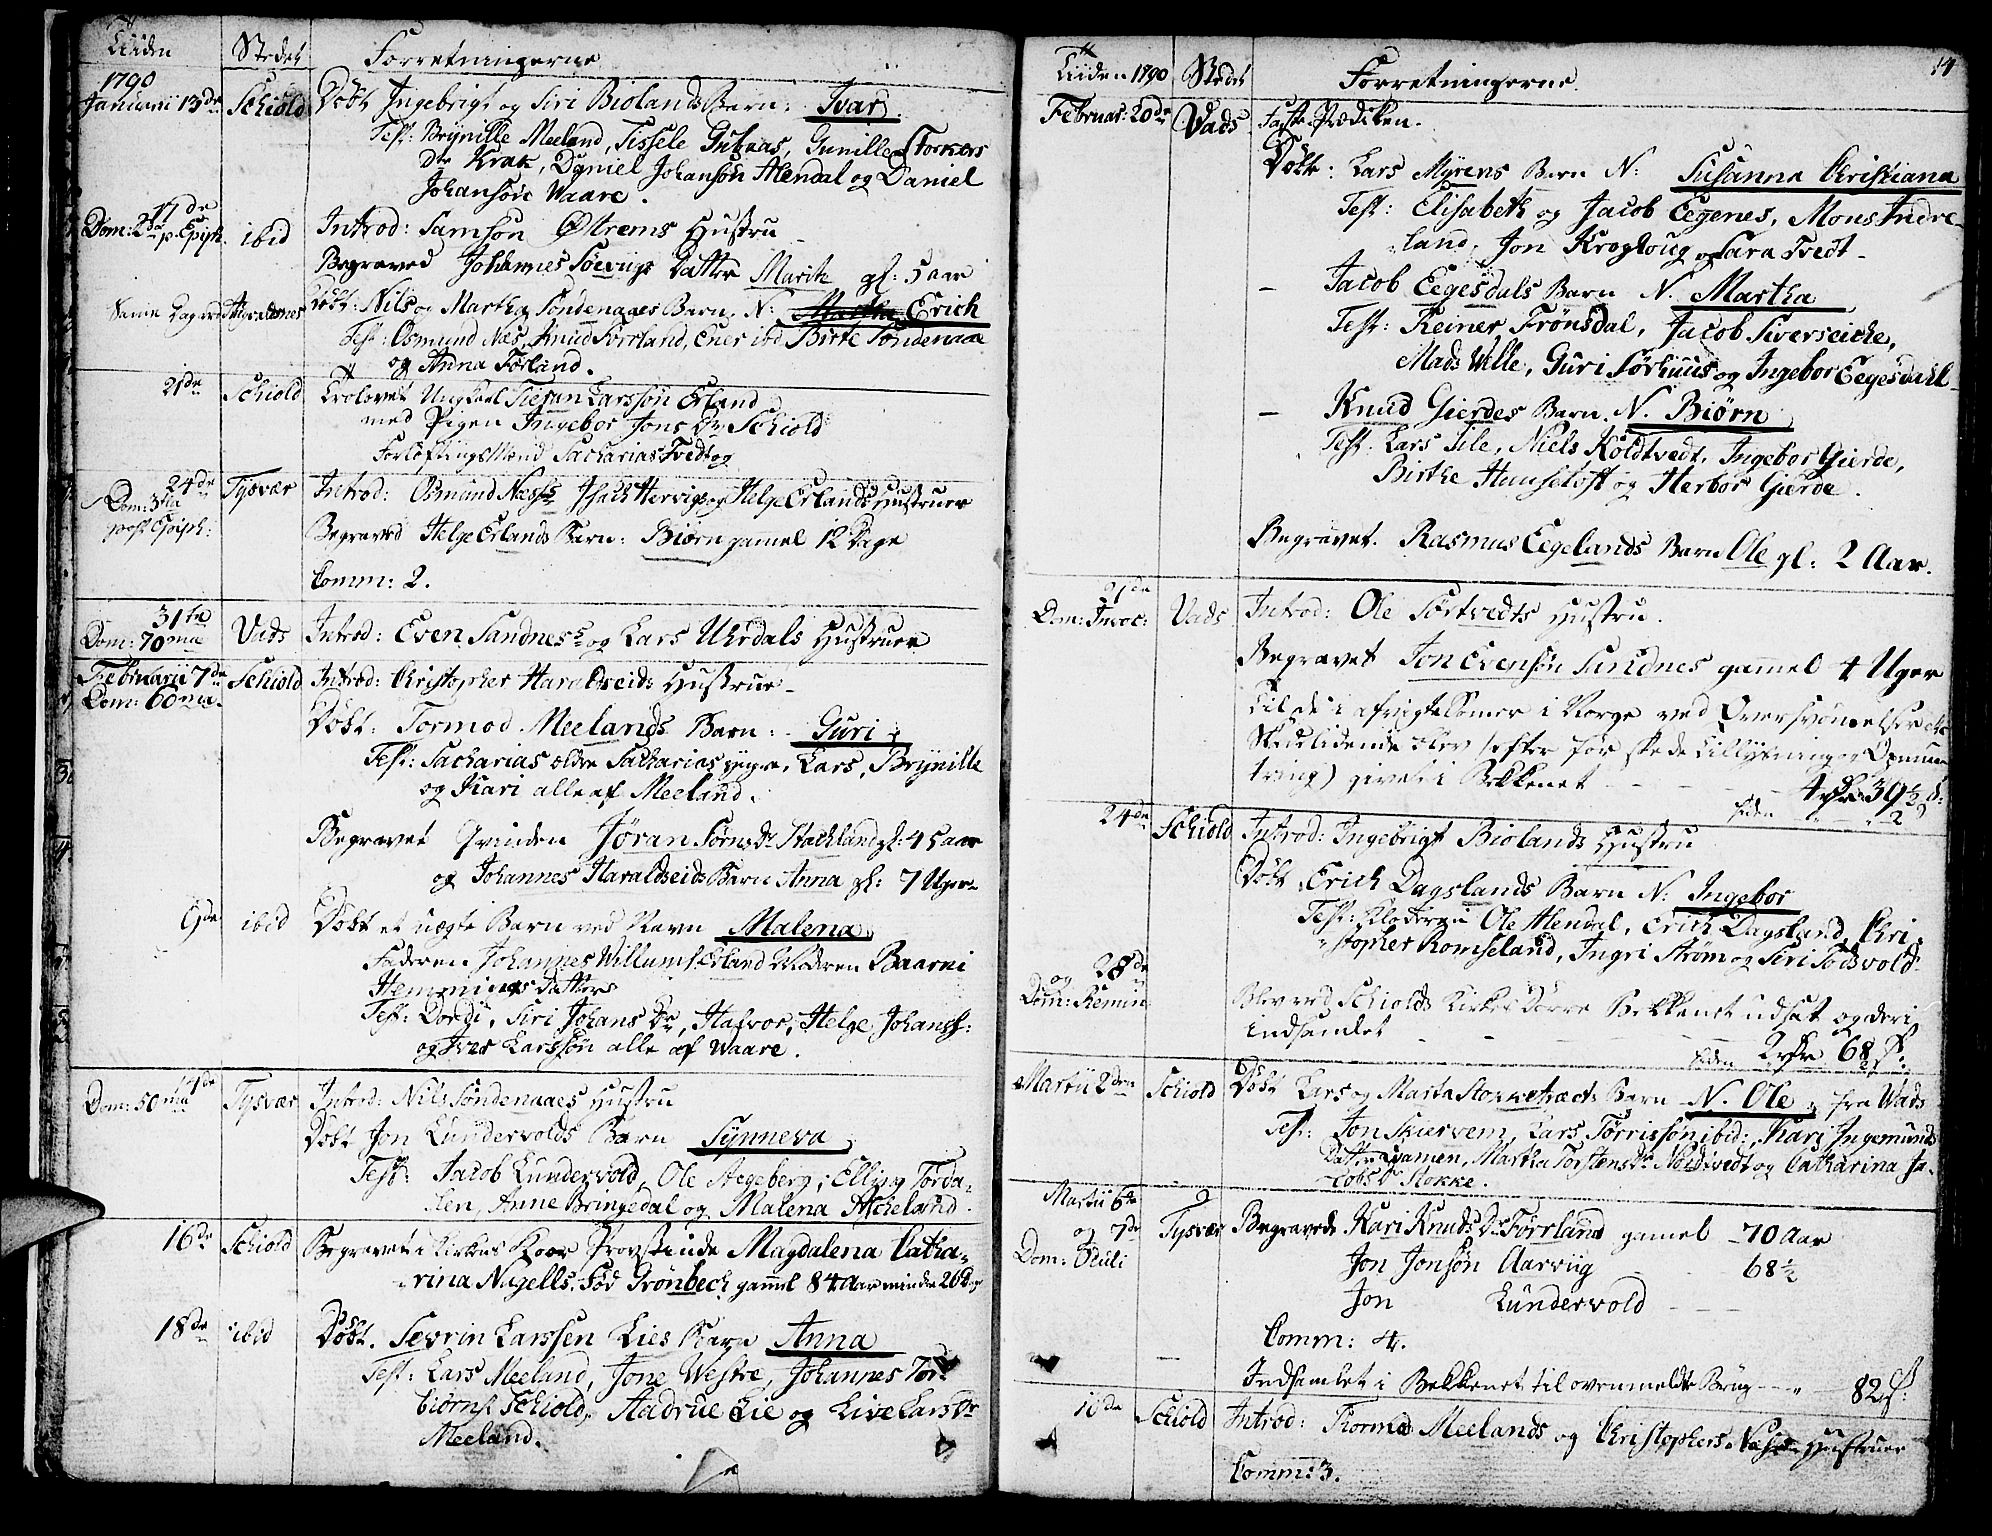 Tiiden Stedet Forretningerne
1790
Januarii 13de Schiold Döbt Ingebrigt og Siri Biolands Barn: Ivar.
Test: Brynille Meeland, Tissele Gutaas, Gunille Storkers
Dr Krak, Daniel Johansön Alendal og Daniel
Johansön Waare.
17de
Dom: 2da p. Epiph. ibid Introd: Samson Østrems Hustru
Begraved Johannes Söeviigs Datter Marite gl: 5 aar
Samme Dag Döbt: Nils og Martha Söndenaaes Barn, N: Erich
Test: Osmund Næs, Knud Forrland, Ener ibd Birte Söndenaae
og Anna Førland.
21de Schiold Trolovet Ungkarl Stefan Larssön Erland
med Pigen Ingebor Jons Dr Schiold
Forløftnings Mænd Sacharias Tvedt og
24de Tysvær Introd: Osmund Næss's Isach Hervigs og Helge Erlands Hustruer
Dom: 3tia
post Epiph: Begraved Helge Erlands Barn: Biörn gamel 12 Dage
Comm: 2.
31te
Dom: 70mæ Vads Introd: Even Sandnes's og Lars Uhrdals Hustruer
Februarii 7de Schiold Introd: Christopher Haraldseids Hustrue
Dom: 60mæ. Döbt: Tormod Meelands Barn: Guri
Test: Sacharias ældre Sacharias yngre, Lars, Brynille
og Kari alle af Meeland.
Begravet Qvinden Jøran Sørens Dr Stachland gl: 45 aar
og Johannes Haraldseids Barn Anna gl: 7 Uger
9de ibid Döbt et uægte Barn ved Navn Malena
Faderen Johannes Willums. Erland Moderen Baarni
Hemmings datter
Test: Dordi, Siri Johans Dr, Hafvor, Helge Johans:
og Iver Larssön alle af Waare.
14de
Dom: 50mæ Tysvær Introd: Nils Söndenaaes Hustru
Döbt Jon Lundervolds Barn Synneva
Test: Jacob Lundervold, Ole Aegeberg, Elling Tørda-
len, Anne Bringedal og Malena Ascheland.
16de Schiold Begravet i Kirkens Koor Provstinde Magdalena Catha-
rina Nagells. Fød Grönbech gammel 84 Aar mindre 26 Dage
18de ibid Döbt. Sevrin Larssen Lies Barn Anna
Test: Lars Meeland, Jone Westre, Johannes Tor-
biörns. Schiold, Aadrue Lie og Live Lars Dr
Meeland.
14
Tiiden 1790 Stedet Forretningerne.
Februar: 20de Vads Faste Prædiken.
Döbt: Lars Myrens Barn N: Susanna Christiana
Test: Elisabeth og Jacob Eegenes, Mons Indre
land, Jon Kroghoug og Sara Tvedt
- Jacob Eegesdals Barn N. Martha
Test: Reiner Frönsdal, Jacob Siverseiche,
Mads Wille, Guri Sørhuus og Ingebor Eegesdahl
- Knud Gierdes Barn. N. Biørn
Test: Lars Sile, Niels Koldtvedt, Ingebor Gierde,
Birthe Hunsetoft og Herbor Gierde.
Begravet. Rasmus Eegelands Barn Ole gl: 2 Aar.
21de
Dom: Invoc: Vads Introd: Ole Sörtvedts Hustru.
Begravet Jon Evensön Sandnes gammel 4 Uger
Til de i afvigte Somer i Norge ved Oversvømmelser etc
Skadelidende blev (efter før skede Tillysning og Opmun
tring) givet i Bekkenet 4 39½ s:
siden 2
24de Schiold Introd: Ingebrigt Biolands Hustru
Döbt Erich Dagslands Barn N: Ingebor
Test: Klokeren Ole Alendal, Erich Dagsland, Chri-
stopher Romseland, Ingri Ström og Siri Södsvold
og 28de
Dom: Remin Blev ved Schiolds Kirke Dørre Bekkenet udsat og deri
Indsamlet 2 68 s:
siden
Martii 2den Schiold Döbt Lars og Marta Stokketræets Barn N. Ole, fra Vads
Test: Jon Skiervem, Lars Törrissön ibid:, Kari Ingemunds
Datter Qvamen, Martha Torstens Dr Noldtvedt og Catharina Ja-
cobs Dr Stokke.
Martii 6te
og 7de Tysvær Begravede Kari Knuds Dr Forrland gamel - 70 Aar
Dom: Oculi Jon Jonsön Aarviig 68½
Jon Lundervold
Comm: 4.
Indsamlet i Bekkenet til ovenmeldte Brug 82 s:
10de Schiold Introd: Thormod Meelands og Christophers Hustruer
Comm: 3.